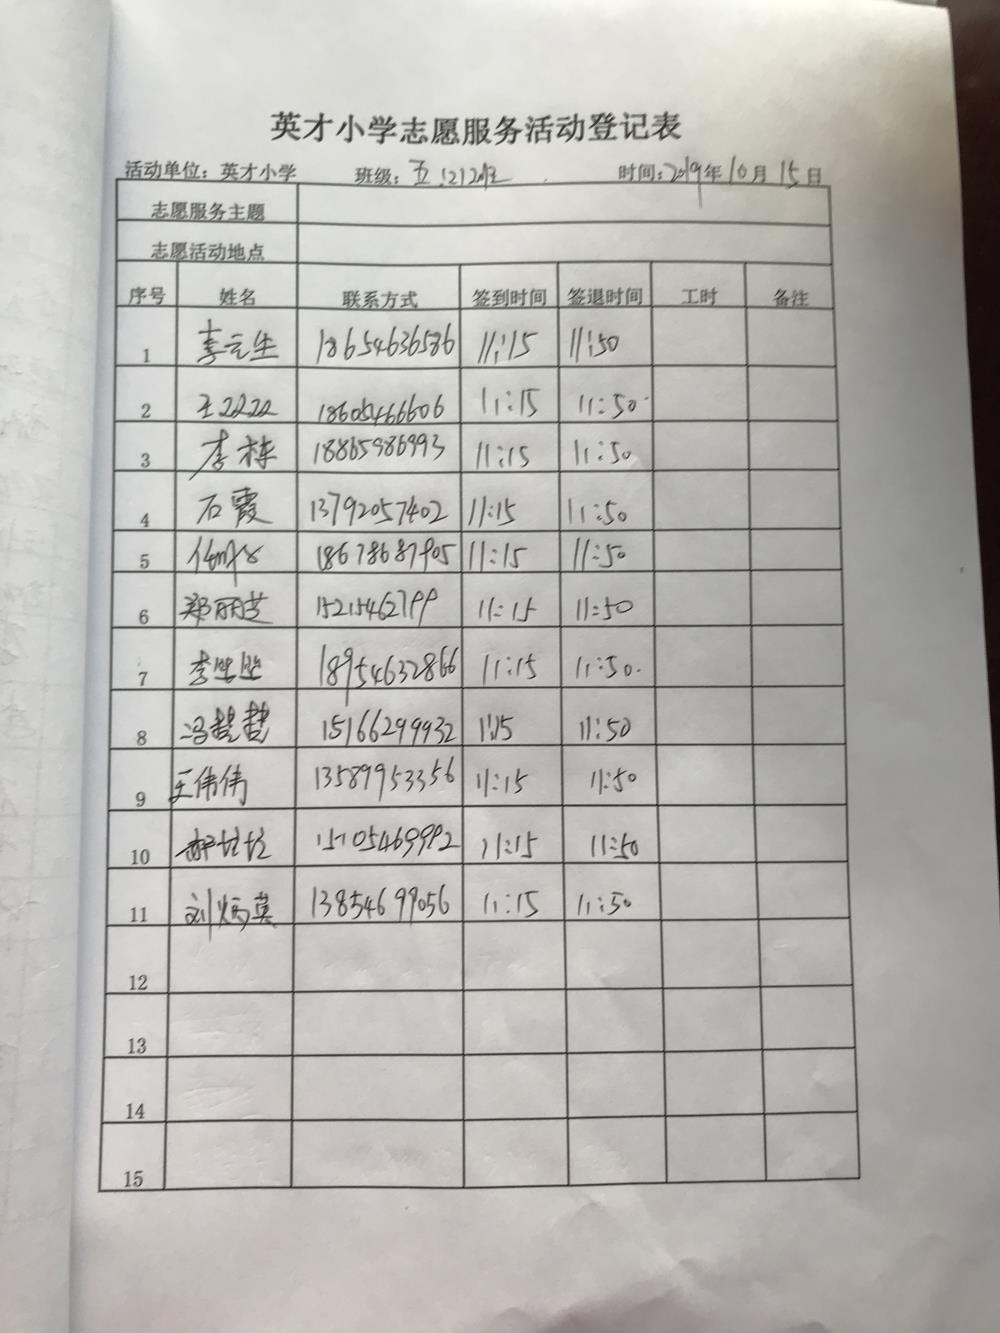 英才小学志愿服务活动登记表
活动单位：英才小学 班级：五 时间：2019年10月15日
志愿服务主题
志愿活动地点
序号 姓名 联系方式 签到时间 签退时间 工时 备注
1 李元生 18654636586 11:15 11:50
2 王 18605466606 11:15 11:50
3 李栋 18865986993 11:15 11:50
4 石霞 13792057402 11:15 11:50
5 18678687905 11:15 11:50
6 郑丽芝 15215462799 11:15 11:50
7 李 18954632866 11:15 11:50
8 冯楚楚 15166299932 11:15 11:50
9 王伟伟 13589953356 11:15 11:50
10 15105469992 11:15 11:50
11 刘炳莫 13854699056 11:15 11:50
12
13
14
15